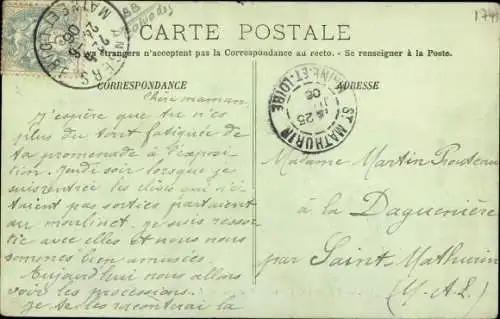 CARTE POSTALE
étrangers n'acceptent pas la Correspondance au recto. — Se renseigner à la Poste.
CORRESPONDANCE
ADRESSE
Chère maman
J'espère que tu n'es
plus du tout fatiguée de
ta promenade à l'exposi-
tion. Jeudi soir lorsque je
suis rentrée les
taient pas sorties partaient
au moulinet. je suis ressor
tie avec elles et nous nous
sommes bien amusées.
Aujourd'hui nous allons
voir les processions.
je te les raconterai la
Madame Martin
à la Daguenière
par Saint Mathurin
(M.&L.)
ANGERS
MAINE ET
ST MATHURIN
MAINE-ET-LOIRE
25
06